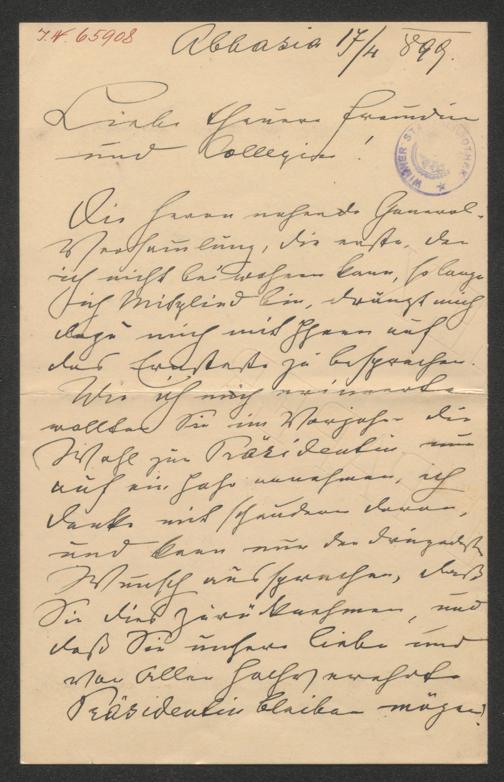 I.N. 65908
Abbazia 17/4 899.
Liebe theuere Freundin
und Collegin!
WIENER STADTBIBLIOTHEK
Die heran nahende General-
Versammlung, die erste, der
ich nicht bei wohnen kann, so lange
ich Mitglied bin, drängt mich
dazu mich mit Ihnen auf
das Ernsteste zu besprechen.
Wie ich mich erinnerte
wollten Sie im Vorjahre die
Wahl zur Präsidentin nur
auf ein Jahr annehmen, ich
denke mit Schaudern daran,
und kann nur den dringendsten
Wunsch aussprechen, daß
Sie dies zurücknehmen, und
daß Sie unsere liebe und
von Allen hochverehrte
Präsidentin bleiben mögen!